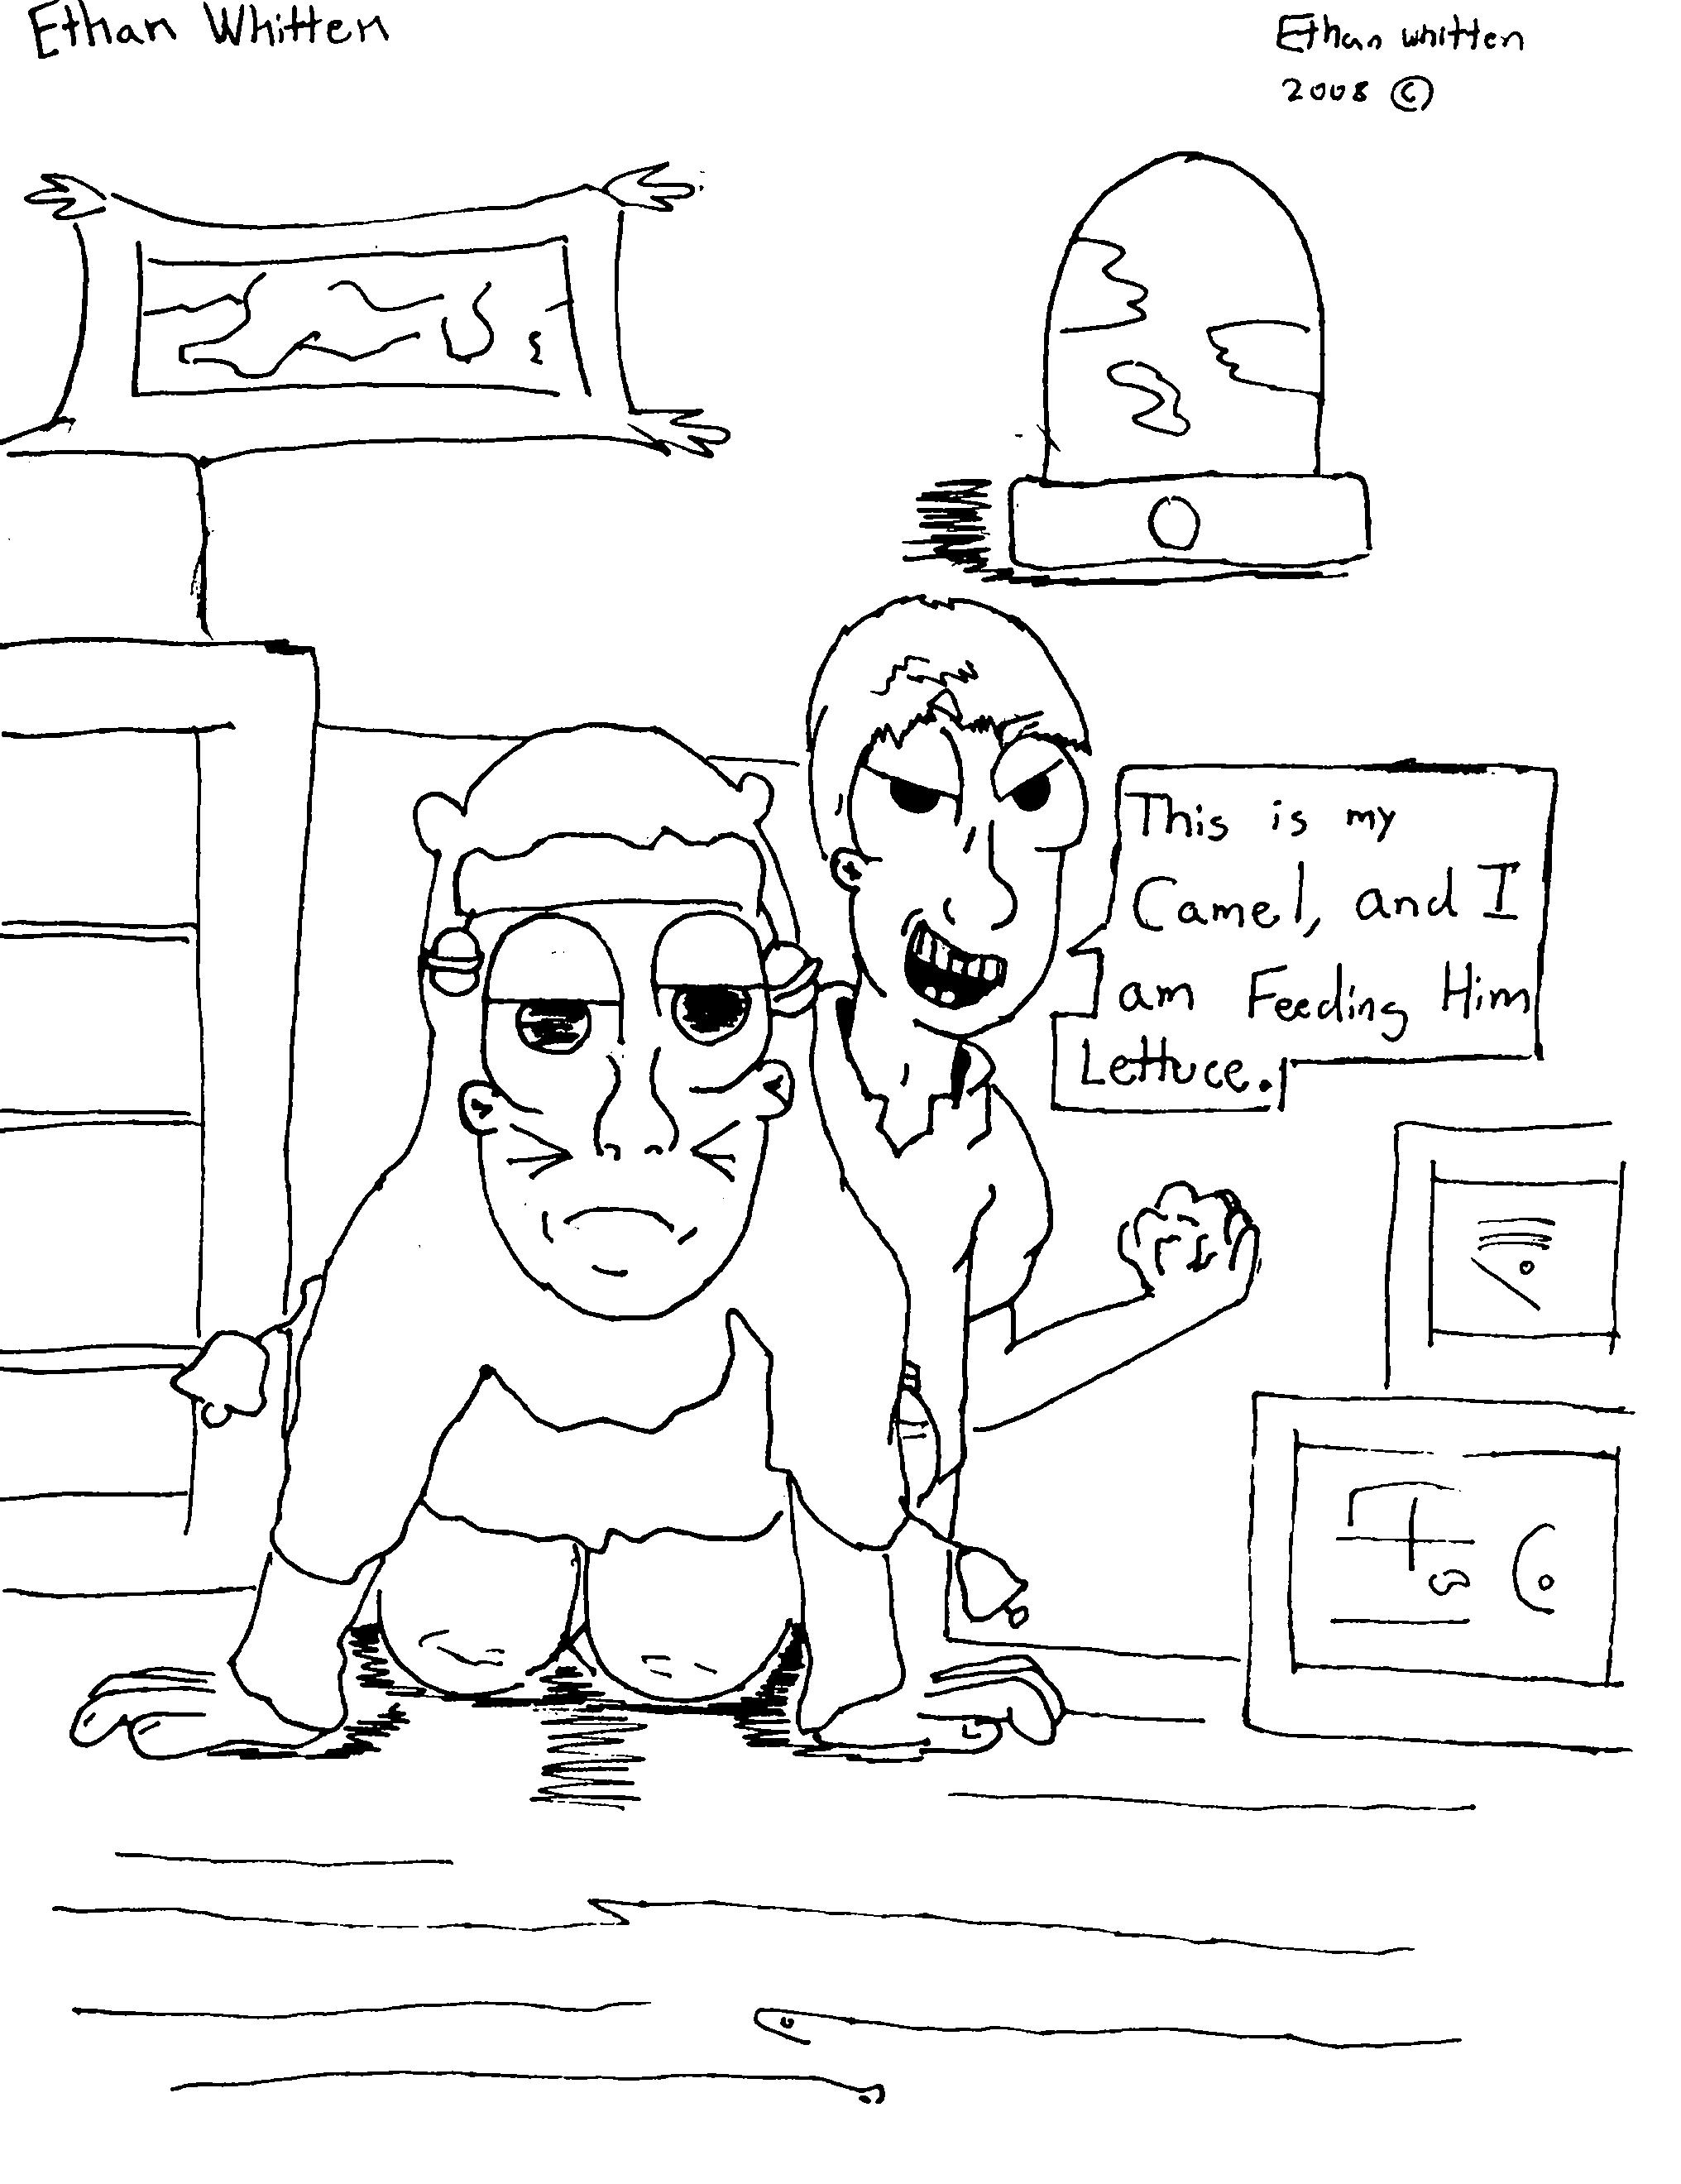 Ethan Whitten
Ethan Whitten
2008 ©
This is my
Camel, and I
am Feeding Him
Lettuce.